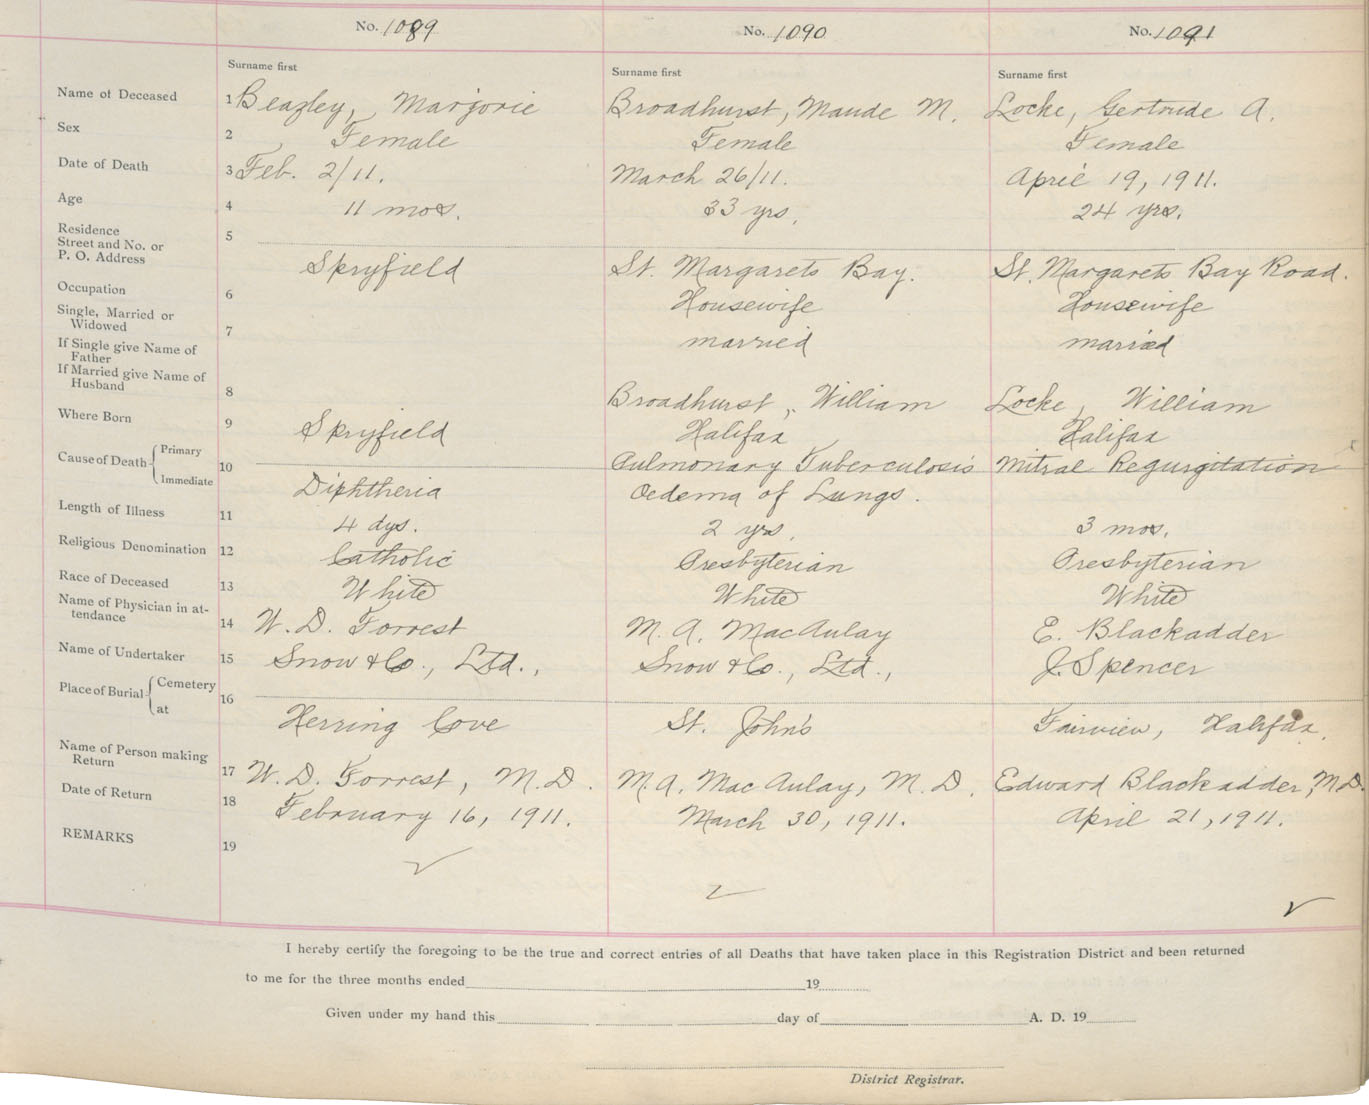 No. 1089 No. 1090 No. 1091
Surname first Surname first Surname first
Name of Deceased 1 Beazley, Marjorie Broadhurst, Maude M. Locke, Gertrude A.
Sex 2 Female Female Female
Date of Death 3 Feb. 2/11. March 26/11. April 19, 1911.
Age 4 11 mos. 33 yrs. 24 yrs.
Residence 5
Street and No. or
P. O. Address Spryfield St. Margarets Bay. St. Margarets Bay Road.
Occupation 6 Housewife Housewife
Single, Married or
Widowed 7 married married
If Single give Name of
Father
If Married give Name of
Husband 8 Broadhurst, William Locke, William
Where Born 9 Spryfield Halifax Halifax
Cause of Death Primary 10 Pulmonary Tuberculosis Mitral Regurgitation
Immediate Diphtheria Oedema of Lungs.
Length of Illness 11 4 dys. 2 yrs. 3 mos.
Religious Denomination 12 Catholic Presbyterian Presbyterian
Race of Deceased 13 White White White
Name of Physician in at-
tendance 14 W. D. Forrest M. A. MacAulay E. Blackadder
Name of Undertaker 15 Snow & Co., Ltd., Snow & Co., Ltd., J. Spencer
Place of Burial Cemetery 16
at Herring Cove St. John's Fairview, Halifax.
Name of Person making
Return 17 W. D. Forrest, M. D. M. A. MacAulay, M. D. Edward Blackadder, M. D.
Date of Return 18 February 16, 1911. March 30, 1911. April 21, 1911.
REMARKS 19
I hereby certify the foregoing to be the true and correct entries of all Deaths that have taken place in this Registration District and been returned
to me for the three months ended 19
Given under my hand this day of A. D. 19
District Registrar.